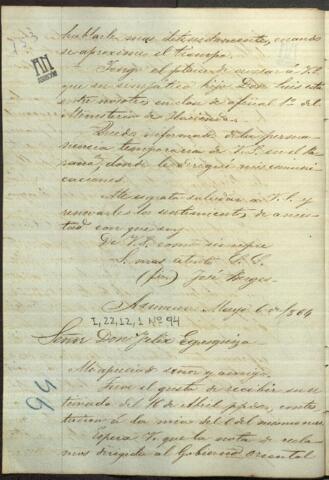 133
hablarle mas detenidamente, cuando
se aproxime el tiempo.
Tengo el placer de avisar á V.S.
que su simpático hijo Don Luis está
entre nosotros en clase de oficial 1º del
Ministerio de Hacienda.
Quedo informado de la perma-
nencia temporaria de V.S. en el Pa-
raná, donde le dirigiré mis comuni-
caciones.
Me es grato saludar a V.S. y
renovarle los sentimientos de amis-
tad con que soy
De V.S. como siempre
S. mas atento S.S.
(fdo) José Berges
Asuncion Mayo 6 de /864
I, 22, 12, 1 Nº 94
Señor Don Felix Egusquiza
94
Mi apreciado señor y amigo.
Tuve el gusto de recibir su es-
timada del 16 de Abril ppdo, contes-
tacion á la mia del 6 del mismo mes
Espera V. que la nota de recla-
mos dirigida al Gobierno Oriental